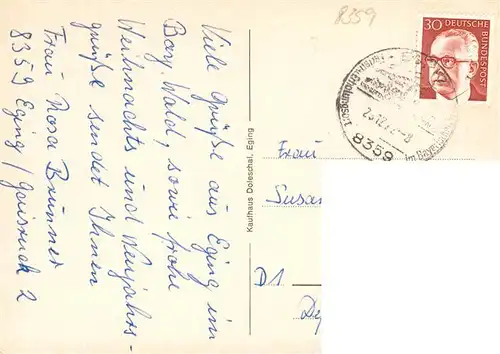 8359
Viele Grüße aus Eging im
Bay. Wald, sowie frohe
Weihnachts und Neujahrs-
grüße sendet Ihnen
Frau Rosa Brunner
8359 Eging / Gaisruck 2
Kaufhaus Doleschal, Eging
30 DEUTSCHE BUNDESPOST
8359
Frau
Susan
D1